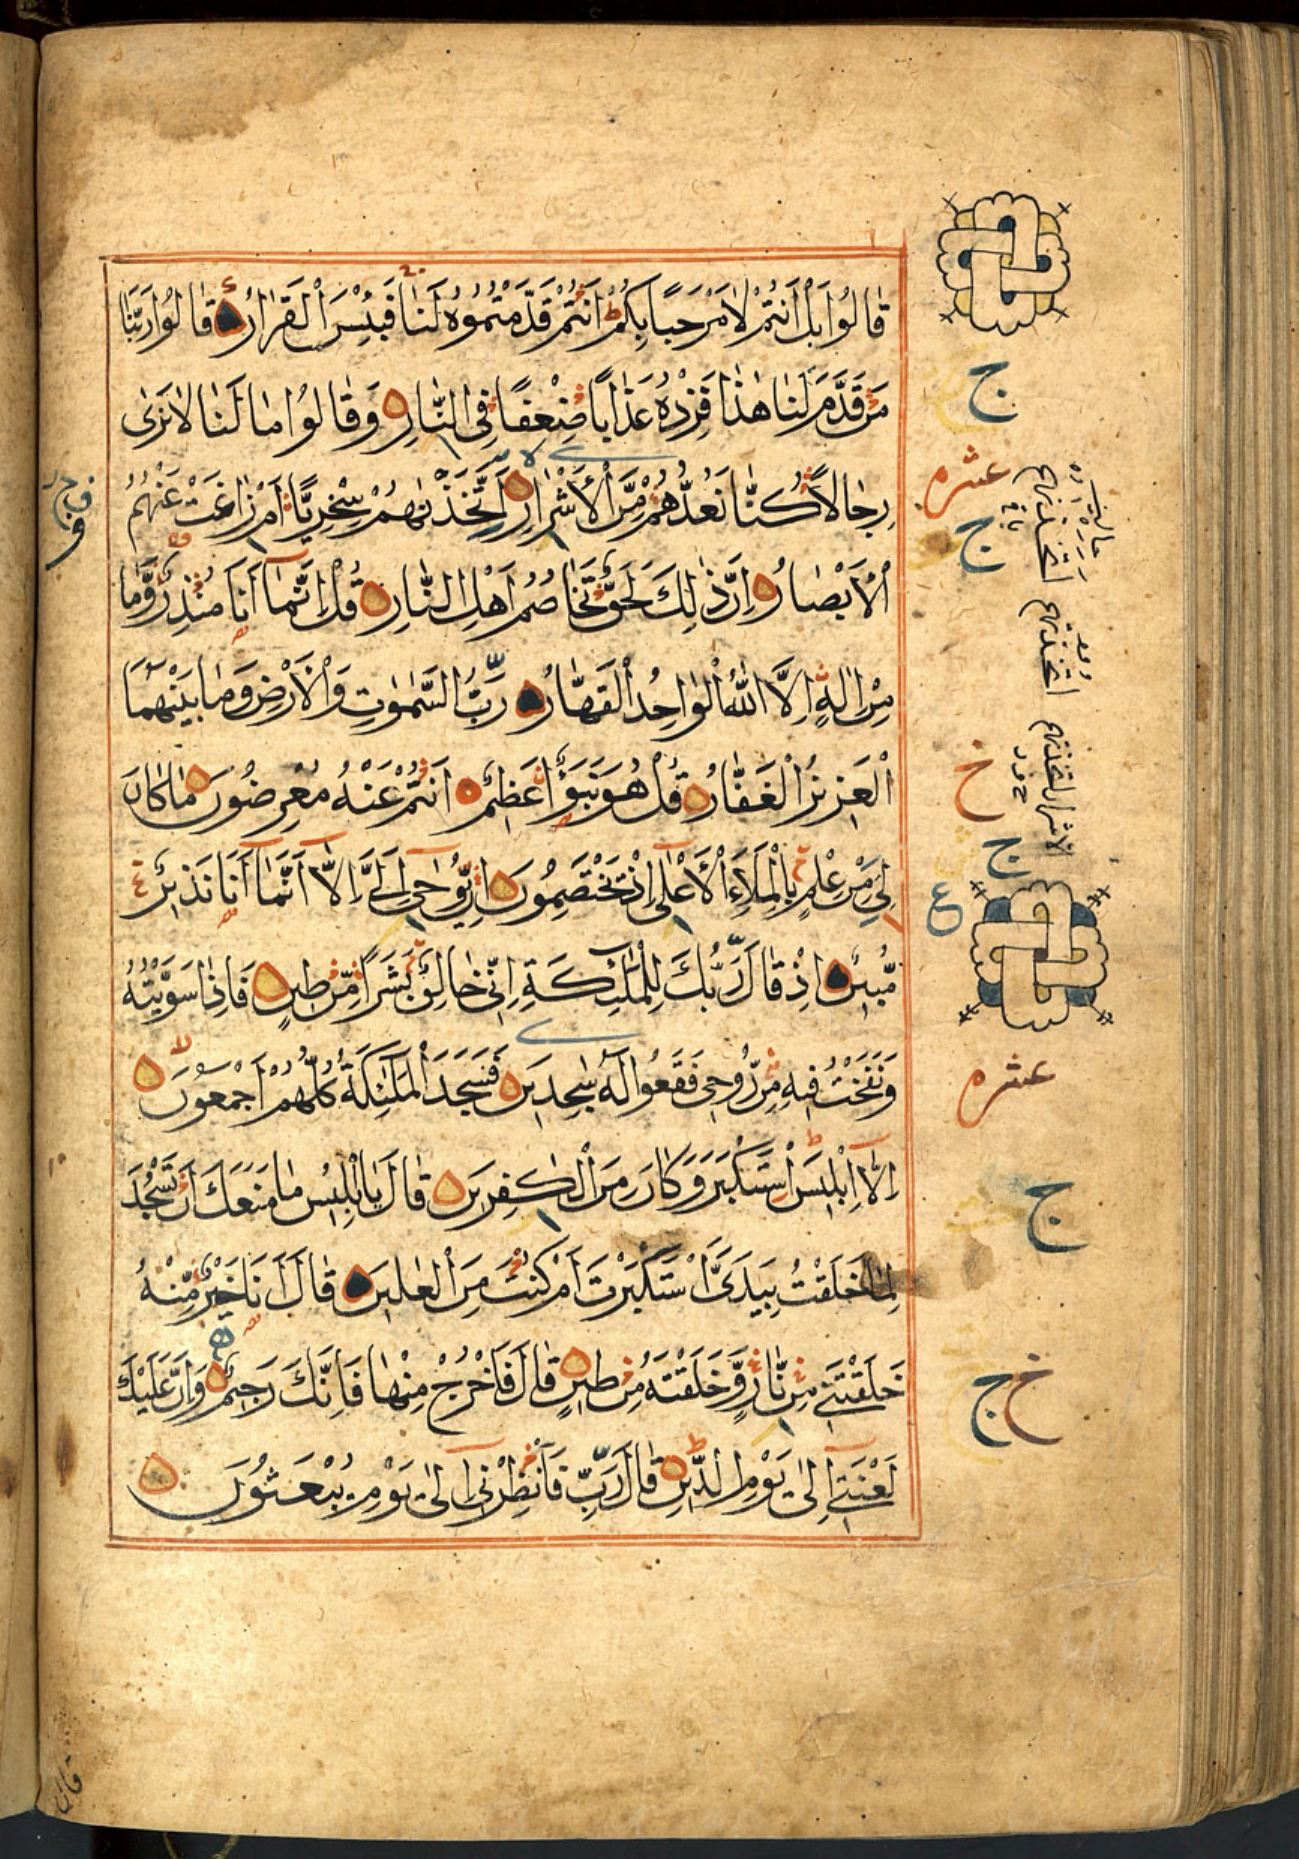 قَالُوا بَلْ أَنْتُمْ لَا مَرْحَبًا بِكُمْ أَنْتُمْ قَدَّمْتُمُوهُ لَنَا فَبِئْسَ الْقَرَارُ قَالُوا رَبَّنَا
مَنْ قَدَّمَ لَنَا هٰذَا فَزِدْهُ عَذَابًا ضِعْفًا فِي النَّارِ وَقَالُوا مَا لَنَا لَا نَرٰى
رِجَالًا كُنَّا نَعُدُّهُمْ مِنَ الْأَشْرَارِ أَتَّخَذْنٰهُمْ سِخْرِيًّا أَمْ زَاغَتْ عَنْهُمُ
الْأَبْصَارُ إِنَّ ذٰلِكَ لَحَقٌّ تَخَاصُمُ أَهْلِ النَّارِ قُلْ إِنَّمَا أَنَا مُنْذِرٌ وَمَا
مِنْ إِلٰهٍ إِلَّا اللّٰهُ الْوَاحِدُ الْقَهَّارُ رَبُّ السَّمٰوٰتِ وَالْأَرْضِ وَمَا بَيْنَهُمَا
الْعَزِيزُ الْغَفَّارُ قُلْ هُوَ نَبَؤٌا عَظِيمٌ أَنْتُمْ عَنْهُ مُعْرِضُونَ مَا كَانَ
لِيَ مِنْ عِلْمٍ بِالْمَلَاءِ الْأَعْلٰى إِذْ يَخْتَصِمُونَ إِنْ يُوحٰى إِلَيَّ إِلَّا أَنَّمَا أَنَا نَذِيرٌ
مُبِينٌ إِذْ قَالَ رَبُّكَ لِلْمَلٰئِكَةِ إِنِّي خَالِقٌ بَشَرًا مِنْ طِينٍ فَإِذَا سَوَّيْتُهُ
وَنَفَخْتُ فِيهِ مِنْ رُوحِي فَقَعُوا لَهُ سٰجِدِينَ فَسَجَدَ الْمَلٰئِكَةُ كُلُّهُمْ أَجْمَعُونَ
إِلَّا إِبْلِيسَ اسْتَكْبَرَ وَكَانَ مِنَ الْكٰفِرِينَ قَالَ يَا إِبْلِيسُ مَا مَنَعَكَ أَنْ تَسْجُدَ
لِمَا خَلَقْتُ بِيَدَيَّ أَسْتَكْبَرْتَ أَمْ كُنْتَ مِنَ الْعٰلِينَ قَالَ أَنَا خَيْرٌ مِنْهُ
خَلَقْتَنِي مِنْ نَارٍ وَخَلَقْتَهُ مِنْ طِينٍ قَالَ فَاخْرُجْ مِنْهَا فَإِنَّكَ رَجِيمٌ وَإِنَّ عَلَيْكَ
لَعْنَتِي إِلٰى يَوْمِ الدِّينِ قَالَ رَبِّ فَأَنْظِرْنِي إِلٰى يَوْمِ يُبْعَثُونَ
ج
عشره
ج
خ
ج
ع
عشره
ج
خ ج
قال